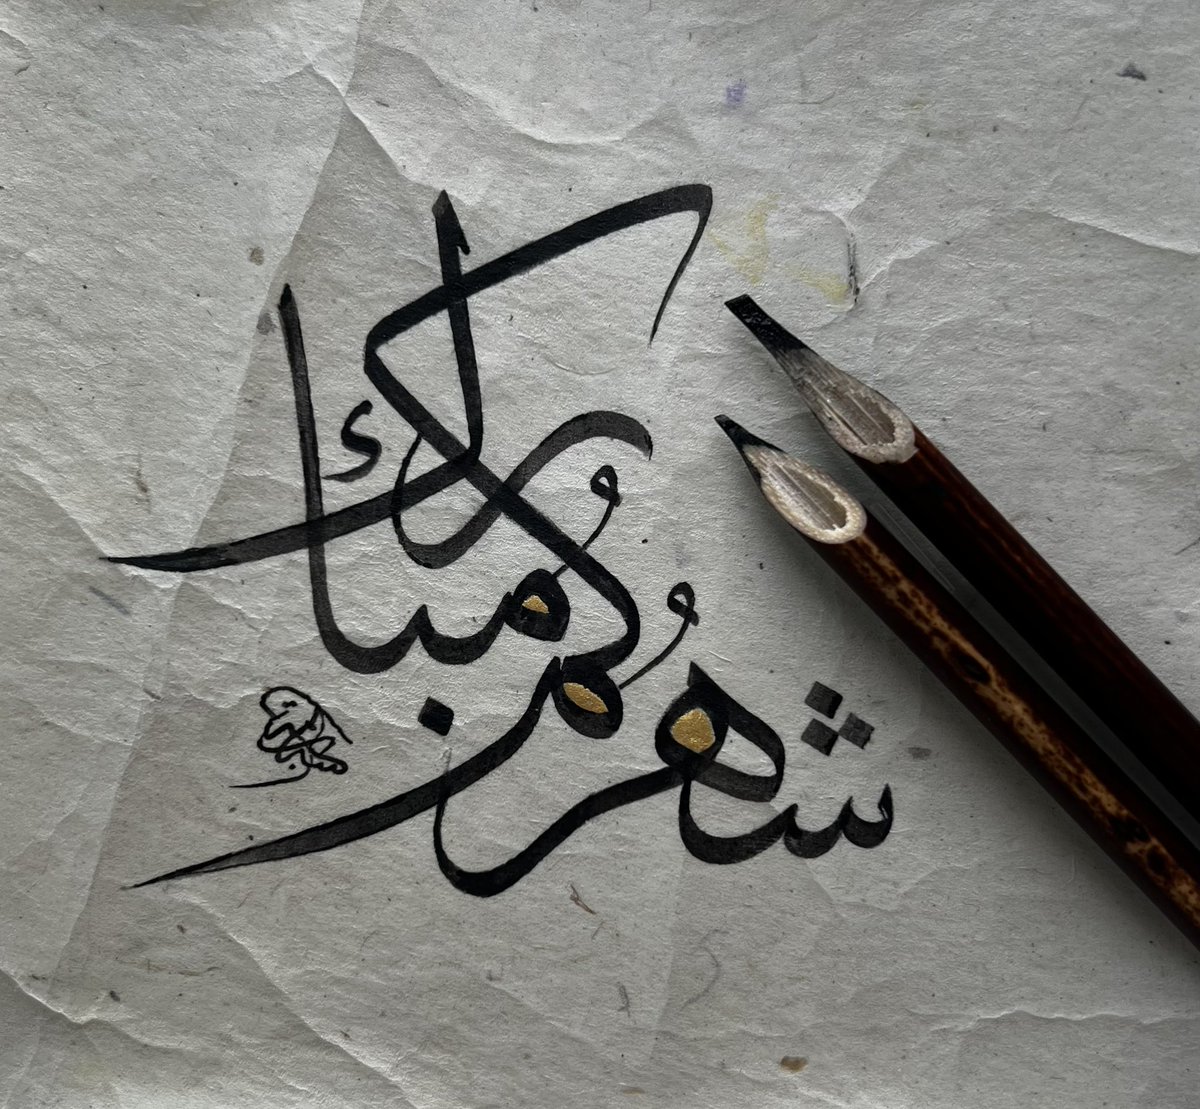 شهركم مبارك